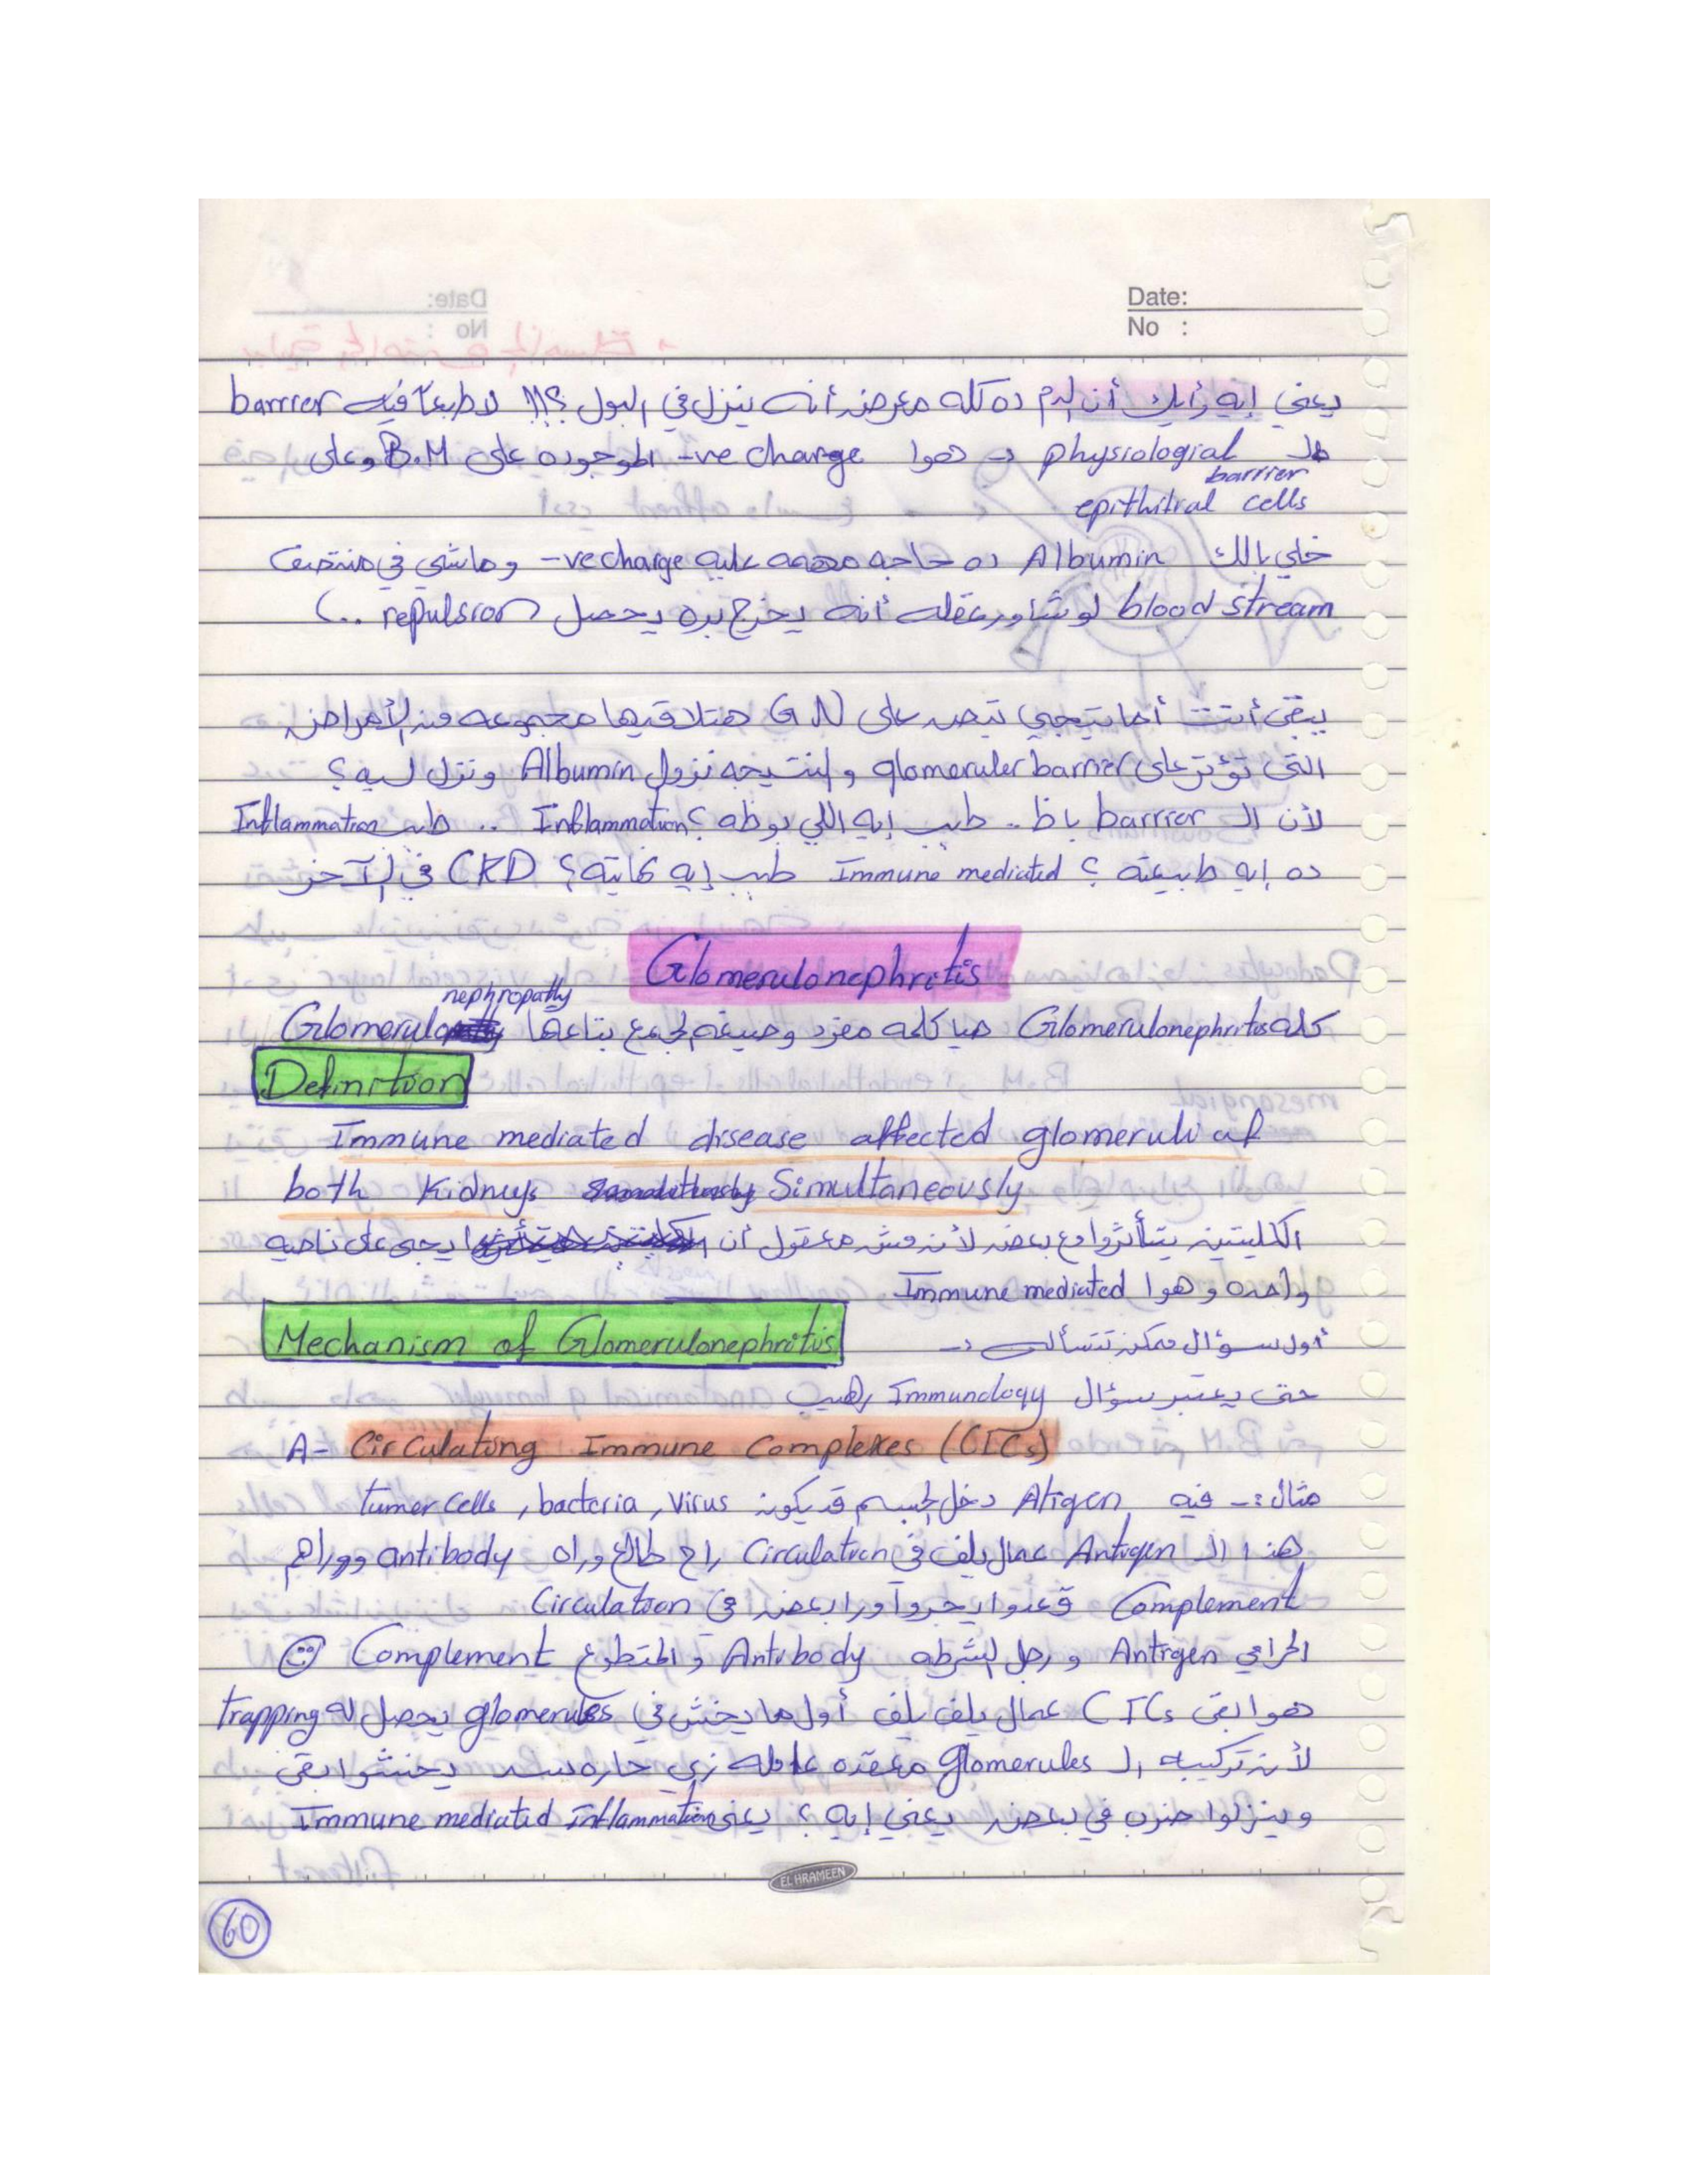 Date:
No :
يعني إيه رأيك أن الدم ده كله معرض أنه ينزل في البول ؟!!! لا طبعاً فيه barrier
الـ physiological barrier → هوا -ve charge الموجوده على B.M وعلى
epithitral cells
خلي بالك Albumin ده حاجه مهمه عليه -ve charge وماشي في منتصف
blood stream لو شاور عقله أنه يخرج بره يحصل repulsion (..
يبقى أنت أما تيجي تبص على GN هتلاقيها مجموعه من الأمراض
التى تؤثر على glomeruler barrier والنتيجه نزول Albumin ونزل ليه ؟
لأن الـ barrier باظ .. طيب إيه اللي بوظه ؟ Inflammation .. طيب Inflammation
ده إيه طبيعته ؟ Immune mediated طيب إيه نهايته ؟ CKD في الآخر
Glomerulonephritis
كلمه Glomerulonephritis هيا كلمه مفرد وصيغه الجمع بتاعها Glomerulo nephropathy
Definition
Immune mediated disease affected glomeruli of
both Kidneys Simultaneously
الكليتين يتأثروا مع بعض لأن مش معقول أن يجى على ناحيه
واحده وهوا Immune mediated
Mechanism of Glomerulonephritis أول سؤال ممكن تتسأله :-
حتى يعتبر سؤال Immunology رهيب
A- Circulating Immune Complexes (CICs)
مثال :- فيه Atigen دخل الجسم قد يكون tumer cells , bacteria , virus
هذا الـ Antigen عمال يلف في Circulation راح طالع وراه antibody ووراهم
Complement قعدوا يجروا ورا بعض في Circulation
الحرامي Antigen ورجل الشرطه Antibody والمتطوع Complement ☺
هوا بقى CICs عمال يلف يلف أول ما يخش في glomerules يحصل له trapping
لأن تركيبه الـ glomerules معقده عامله زي حاره سد يخشوا بقى
وينزلوا ضرب في بعض يعني إيه ؟ يعني Immune mediated Inflammation
EL HRAMEEN
60